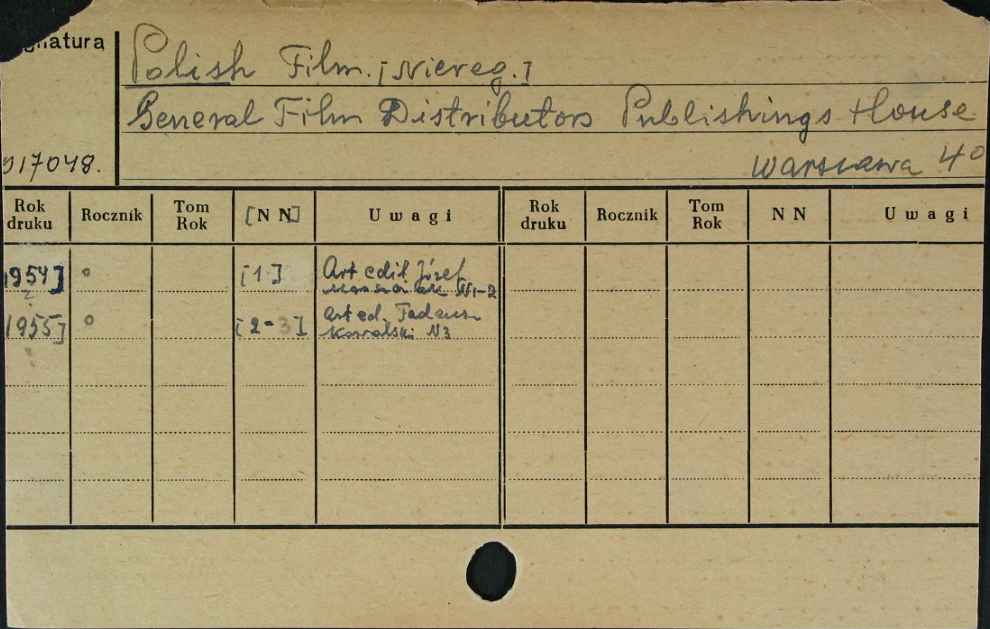 gnatura
Polish Film. [Niereg.]
General Film Distributors Publishings House
917048.
Warszawa 4°
Rok druku Rocznik Tom Rok [N N] U w a g i Rok druku Rocznik Tom Rok N N U w a g i
1954] ° [1-] Art edit Józef
N1-2
1955] ° [2-3] art ed. Tadeusz
Kowalski N3